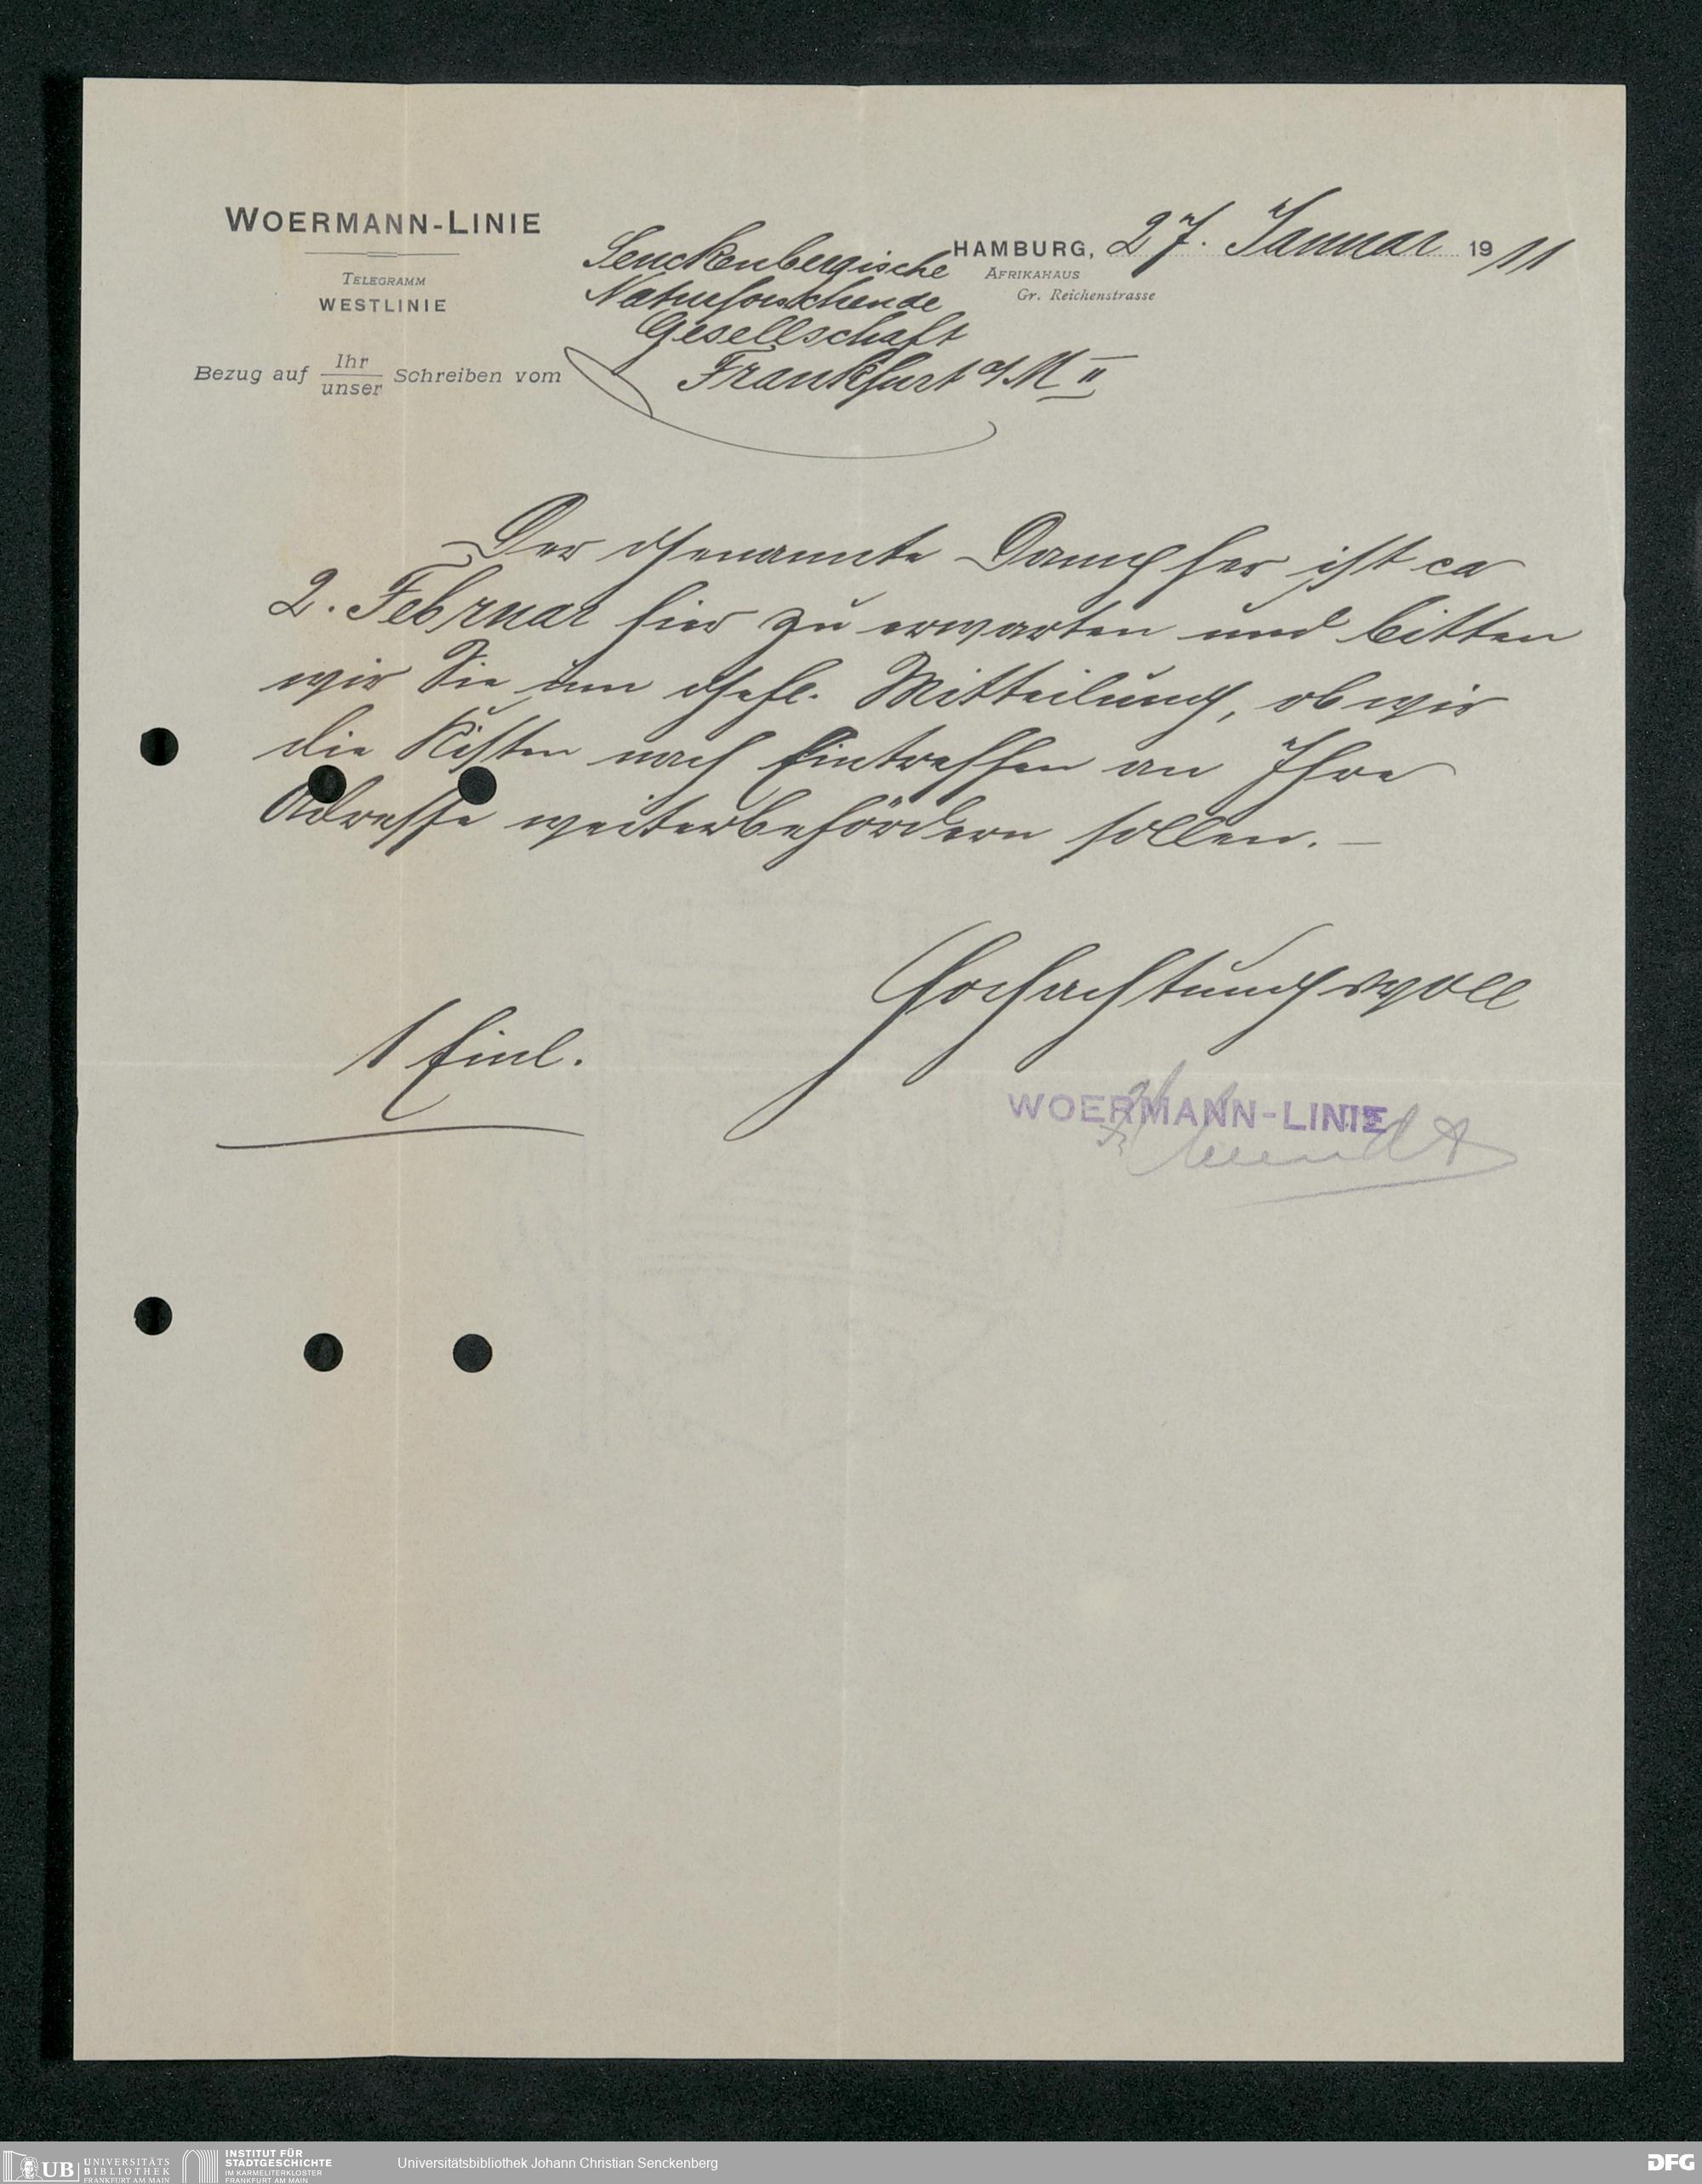 WOERMANN-LINIE
TELEGRAMM
WESTLINIE
HAMBURG, 27. Januar 1911
AFRIKAHAUS
Gr. Reichenstrasse
Senckenbergische
Naturforschende
Gesellschaft
Frankfurt a/M II
Bezug auf Ihr/unser Schreiben vom
Der genannte Dampfer ist ca
2. Februar hier zu erwarten und bitten
wir Sie um gefl. Mitteilung, ob wir
die Kisten nach Eintreffen an Ihre
Adresse weiterbefördern sollen. —
Hochachtungsvoll
1 Einl.
WOERMANN-LINIE
UB UNIVERSITÄTS
BIBLIOTHEK
FRANKFURT AM MAIN
INSTITUT FÜR
STADTGESCHICHTE
IM KARMELITERKLOSTER
FRANKFURT AM MAIN
Universitätsbibliothek Johann Christian Senckenberg
DFG